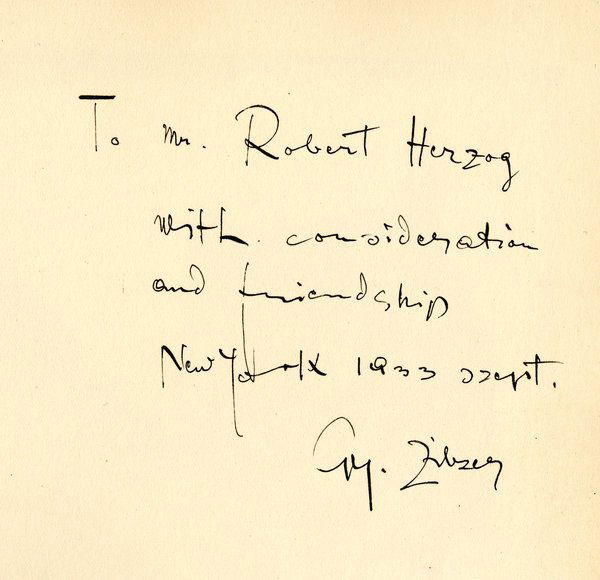 To Mr. Robert Herzog
with consideration
and friendship
New York 1933 szept.
Gy. Zilzer